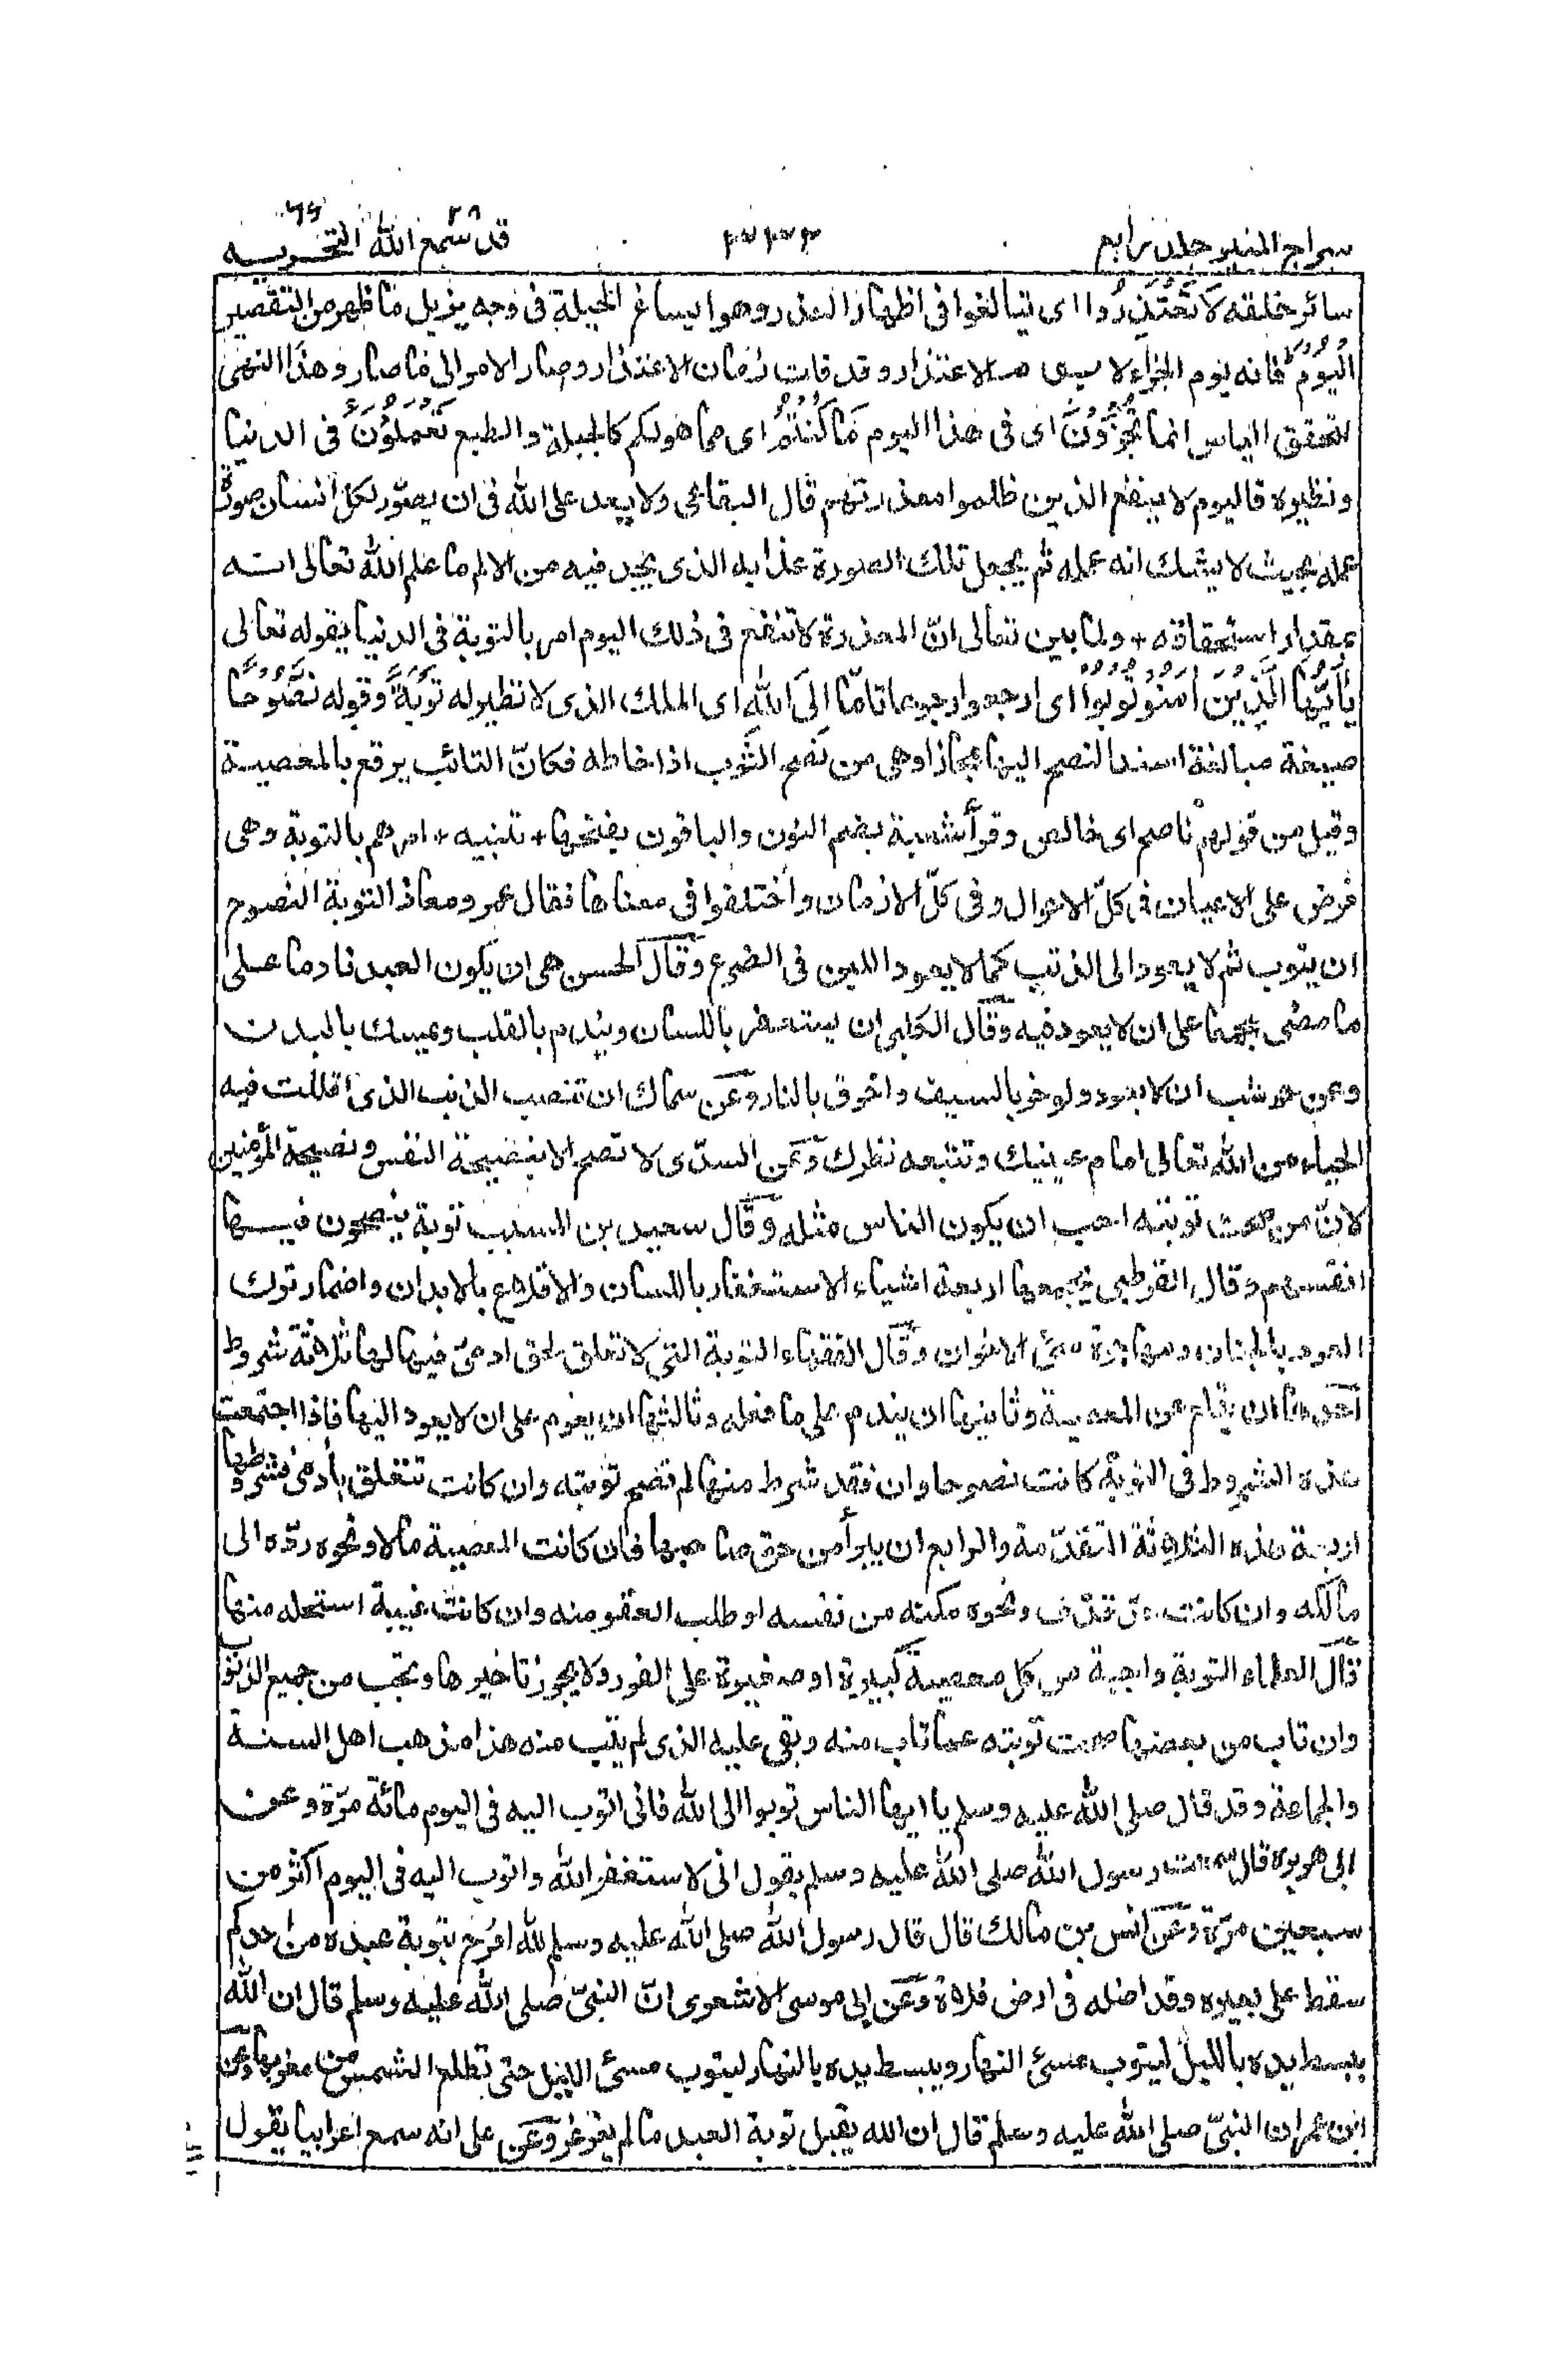 سراج المنير جلد رابع قد سمع الله ٢٨ التحريم ٦٦
سائر خلقه لَا تَعْتَذِرُوا اى تبالغوا فى اظهار العذر وهو ايساغ الحيلة فى وجه يزيل ما ظهر من التقصير
الْيَوْمَ فانه يوم الجزاء لا الاعتذار وقد فات زمان الاعتذار وصار الامر الى ما صار وهذا النهى
لتحقق الياس انما تُجْزَوْنَ اى فى هذا اليوم مَا كُنْتُمْ اى مما هو لكم كالجبلة والطبع تَعْمَلُوْنَ فى الدنيا
ونظيره فاليوم لا ينفع الذين ظلموا معذرتهم قال البقاعى ولا يبعد على الله فى ان يصوّر لكل انسان صورة
عمله بحيث لا يشك انه عمله ثم يجعل تلك الصورة عذابه الذى يجد فيه من الالم ما علم الله تعالى انه
بمقدار استحقاقه + ولما بين تعالى انّ المعذرة لا تنفع فى ذلك اليوم امر بالتوبة فى الدنيا بقوله تعالى
يٰأَيُّهَا الَّذِيْنَ اٰمَنُوْا تُوبُوْا اى ارجعوا رجوعا تامّا الَى اللهِ اى الملك الذى لا نظير له تَوْبَةً وقوله نَصُوْحًا
صيغة مبالغة اسند النصح اليها مجازا وهى من نصح الثوب اذا خاطه فكانّ التائب يرقع بالمعصية
وقيل من قولهم ناصح اى خالص وقرأ شعبة بضم النون والباقون بفتحها + تنبيه + امرهم بالتوبة وهى
فرض على الاعيان فى كلّ الاحوال وفى كلّ الازمان واختلفوا فى معناها فقال عمر ومعاذ التوبة النصوح
ان يتوب ثم لا يعود الى الذنب كما لا يعود اللبن فى الضرع وقال الحسن هى ان يكون العبد نادما على
ما مضى مجمعا على ان لا يعود فيه وقال الكلبى ان يستغفر باللسان ويندم بالقلب ويمسك بالبدن
وعن حوشب ان لا يعود ولو حز بالسيف واحرق بالنار وعن سماك ان تنصب الذنب الذى اقللت فيه
الحياء من الله تعالى امام عينيك وتتبعه نظرك وعن السدّى لا تصح الا بنصيحة النفس ونصيحة المؤمنين
لانّ من صحت توبته احب ان يكون الناس مثله وقال سعيد بن المسيب توبة ينصحون فيها
انفسهم وقال القرظى يجمعها اربعة اشياء الاستغفار باللسان والاقلاع بالابدان واضمار ترك
العود بالجنان ومهاجرة سئ الاخوان وقال الفقهاء التوبة التى لا تتعلق بحق ادمىّ فيها لها ثلاثة شروط
احدها ان يقلع عن المعصية وثانيها ان يندم على ما فعله وثالثها ان يعزم على ان لا يعود اليها فاذا اجتمعت
هذه الشروط فى التوبة كانت نصوحا وان فقد شرط منها لم تصح توبته وان كانت تتعلق بأدمى فشروطها
اربعة هذه الثلاثة المتقدّمة والرابع ان يبرأ من حق صاحبها فان كانت المعصية مالا ونحوه ردّه الى
مالكه وان كانت قذف ونحوه مكنه من نفسه او طلب العفو منه وان كانت غيبة استحله منها
قال العلماء التوبة واجبة من كل معصية كبيرة او صغيرة على الفور ولا يجوز تاخيرها وتجب من جميع الذنوب
وان تاب من بعضها صحت توبته عما تاب منه وبقى عليه الذى لم يتب منه هذا مذهب اهل السنة
والجماعة وقد قال صلى الله عليه وسلم يا ايها الناس توبوا الى الله فانى اتوب اليه فى اليوم مائة مرّة وعن
ابى هريرة قال سمعت رسول الله صلى الله عليه وسلم يقول انى لاستغفر الله واتوب اليه فى اليوم اكثر من
سبعين مرّة وعن انس بن مالك قال قال رسول الله صلى الله عليه وسلم لله افرح بتوبة عبده من احدكم
سقط على بعيره وقد اضله فى ارض فلاة وعن ابى موسى الاشعرى انّ النبىّ صلى الله عليه وسلم قال ان الله
يبسط يده بالليل ليتوب مسئ النهار ويبسط يده بالنهار ليتوب مسئ الليل حتى تطلع الشمس من مغربها وعن
ابن عمر ان النبىّ صلى الله عليه وسلم قال ان الله يقبل توبة العبد ما لم يغرغر وعن على انه سمع اعرابيا يقول